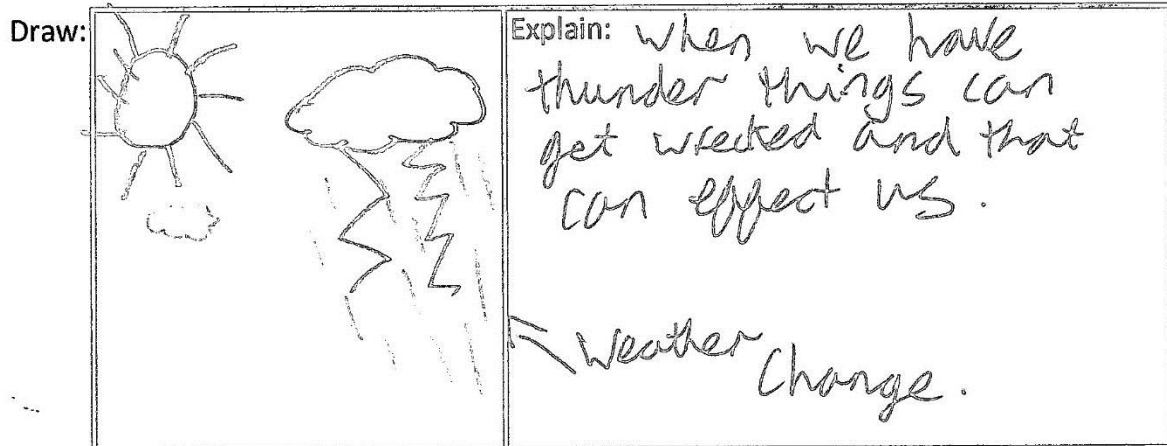 Draw:
Explain: when we have
thunder things can
get wrecked and that
can effect us.
Weather Change.